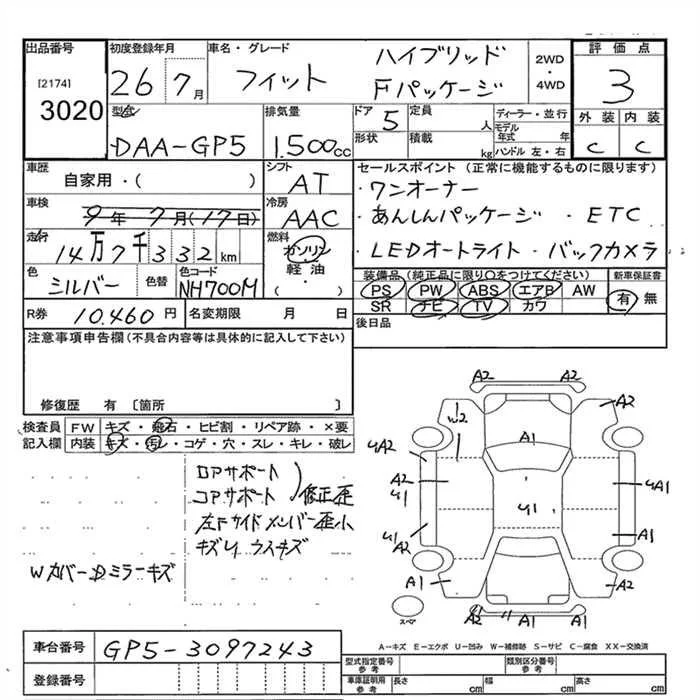 出品番号 初度登録年月 車名・グレード ハイブリッド 2WD・4WD 評価点
[2174] 3020 26 7月 フィット Fパッケージ 3
型式 排気量 ドア 5 定員 人 ディーラー・並行 外装 内装
DAA-GP5 1.500cc 形状 積載 kg モデル年式 年 ハンドル 左・右 C C
車歴 シフト セールスポイント(正常に機能するものに限ります)
自家用・( ) AT ・ワンオーナー
車検 9年7月(17日) 冷房 AAC ・あんしんパッケージ ・ETC
走行 14万7千332km 燃料 ガソリン ・LEDオートライト・バックカメラ
色 シルバー 色替 色コード NH700M 軽油・( ) 装備品(純正品に限り○をつけてください) 新車保証書
PS PW ABS エアB AW 有 無
R券 10.460円 名変期限 月 日 SR ナビ TV カワ
注意事項申告欄(不具合内容等は具体的に記入して下さい) 後日品
修復歴 有 [箇所 ]
検査員 FW キズ・飛石・ヒビ割・リペア跡・×要
記入欄 内装 キズ・汚レ・コゲ・穴・スレ・キレ・破レ
A2 A2
A2 W2 A2
A1
U2 A2 U1 U1 UA1
U1 A2 A1
A1 A2
A1 A1
スペア
ロアサポート
コアサポート 修正歪
左Fサイドメンバー歪小
キズレ ウスキズ
Wカバー Dミラーキズ
A-キズ E-エクボ U-凹み W-補修跡 S-サビ C-腐食 XX-交換済
車台番号 GP5-3097243
登録番号
型式指定番号 参考 類別区分番号 参考
車庫証明用 参考 長さ cm 幅 cm 高さ cm